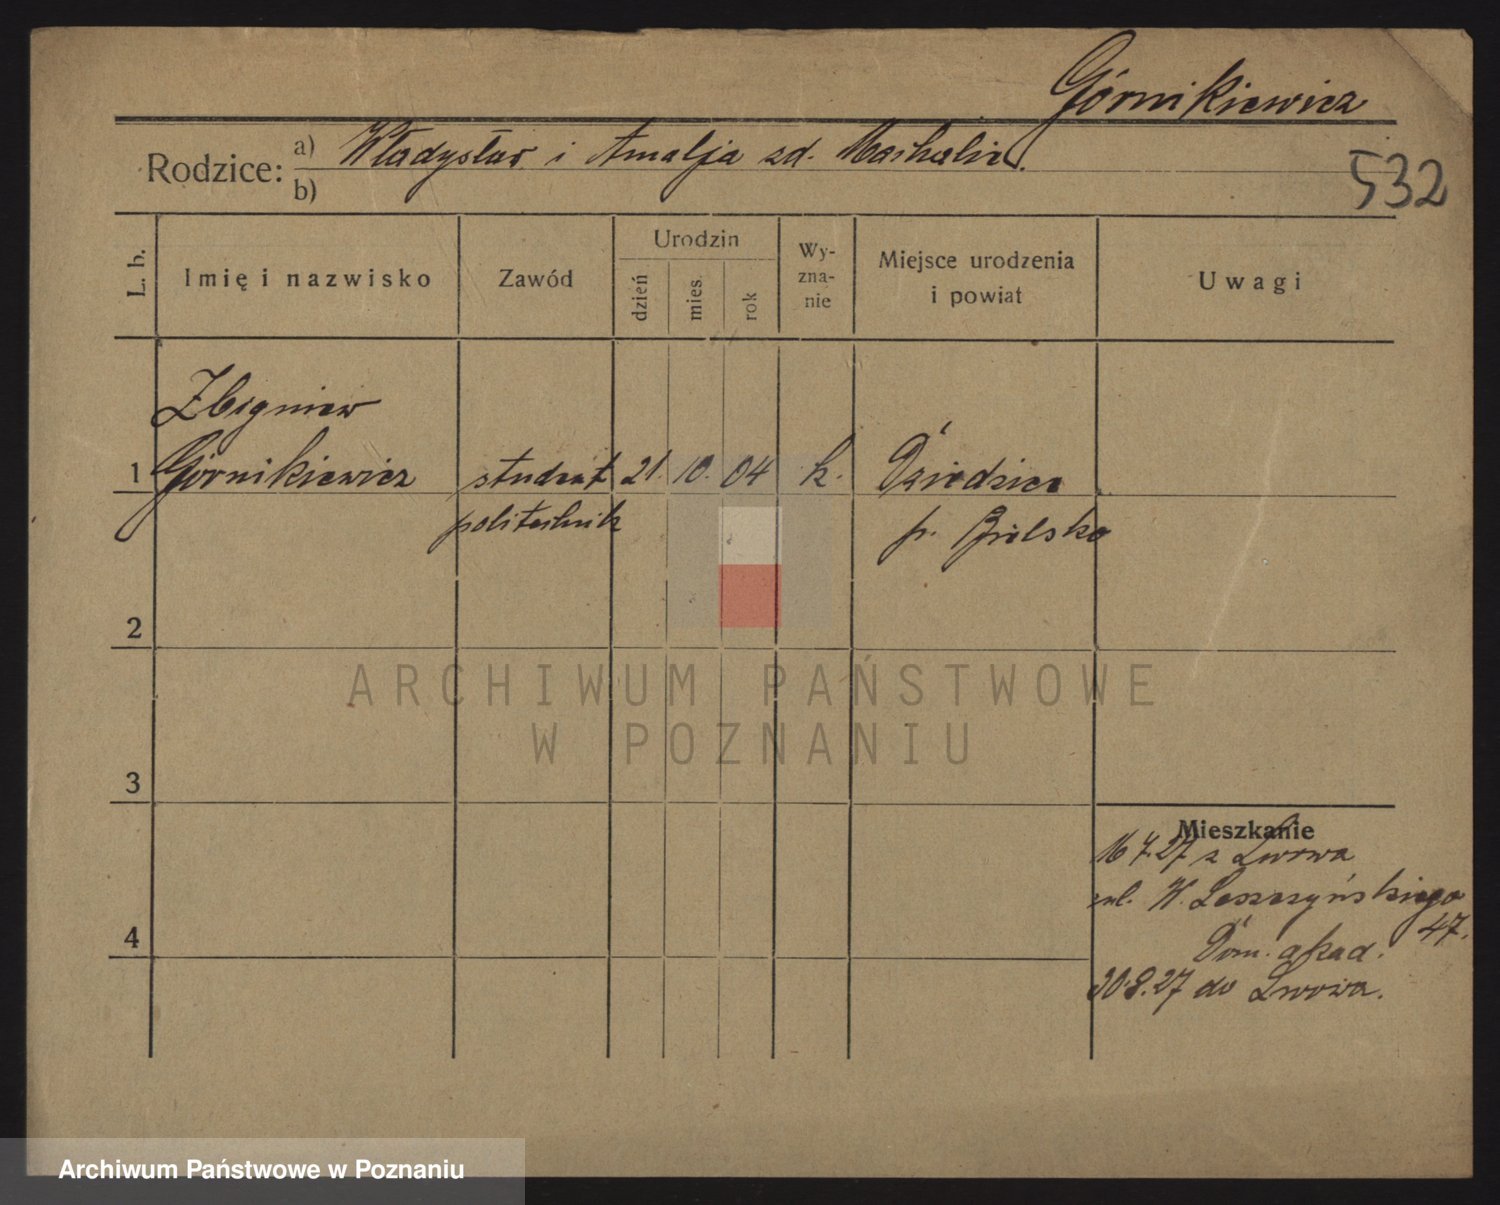 Górnikiewicz
Rodzice: a) Władysław i Amalja zd.
b)
532
L. b.
Imię i nazwisko
Zawód
Urodzin
dzień
mies.
rok
Wy-
zna-
nie
Miejsce urodzenia
i powiat
Uwagi
Zbigniew
1 Górnikiewicz student 21. 10. 04 k. Dziedzice
politechnik p. Bielsko
2
3
4
Mieszkanie
16 7.27 z Lwowa
ul. W. Leszczyńskiego
47.
Dom. akad.
30.8.27 do Lwowa.
ARCHIWUM PAŃSTWOWE
W POZNANIU
Archiwum Państwowe w Poznaniu